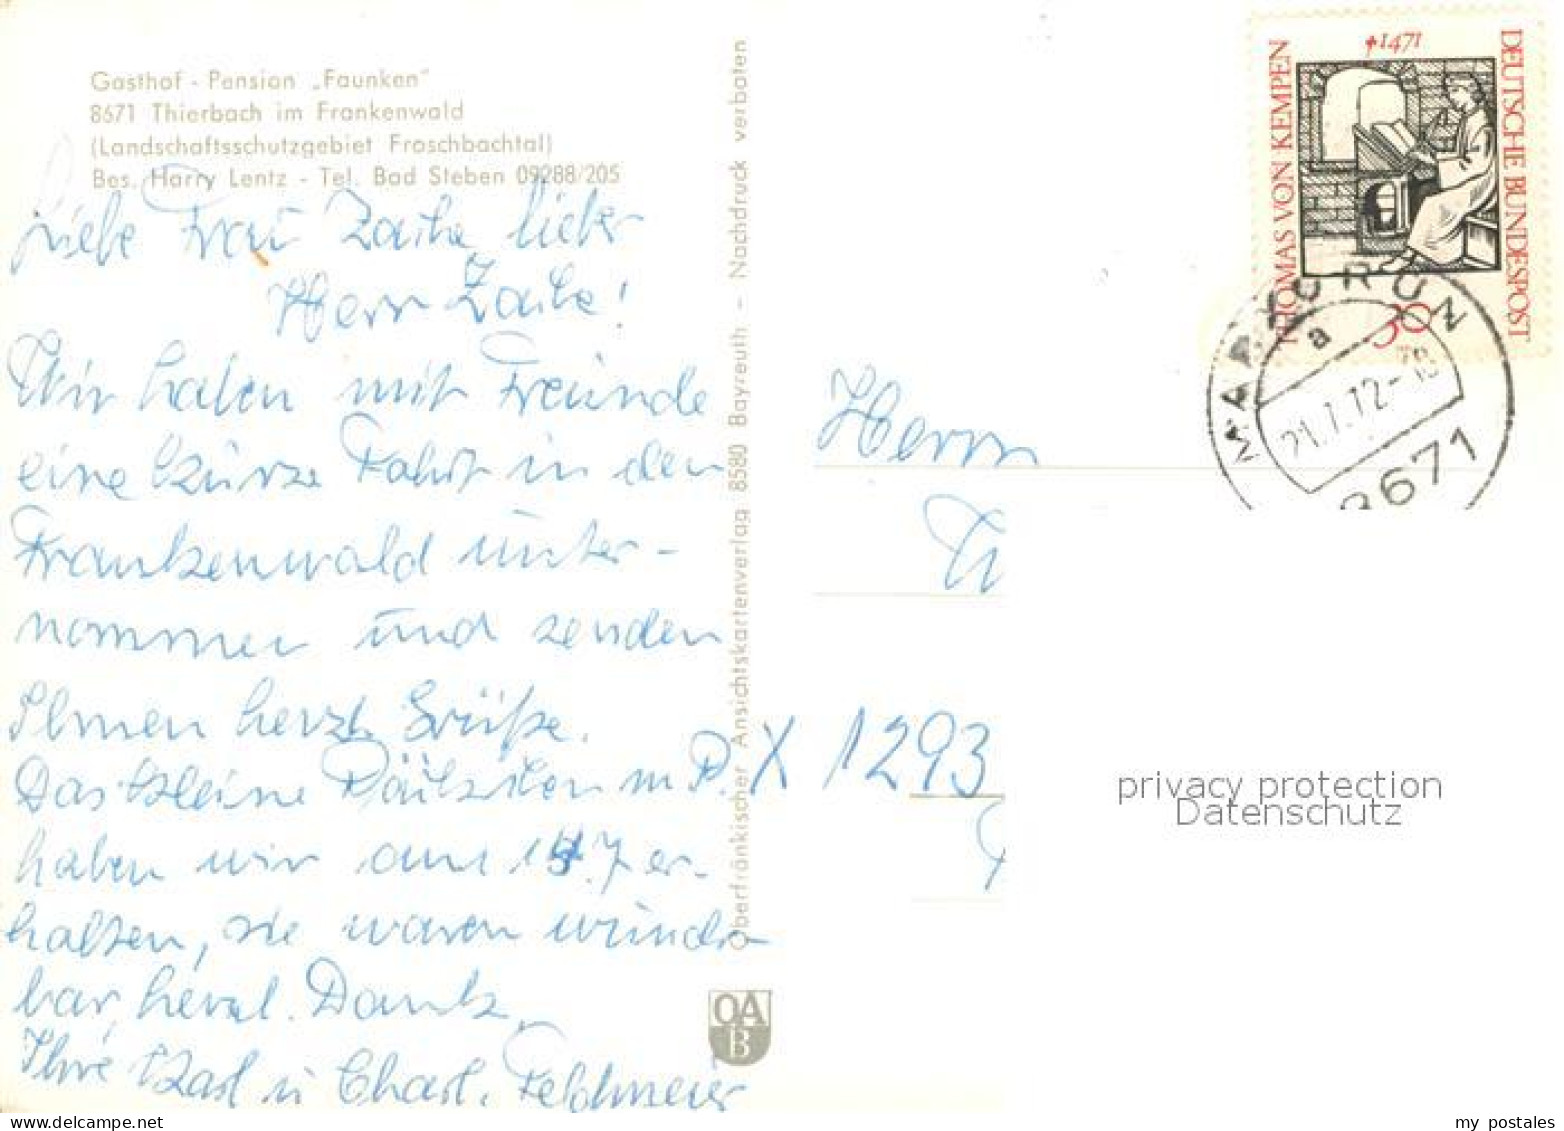 Gasthof - Pension „Faunken"
8671 Thierbach im Frankenwald
(Landschaftsschutzgebiet Froschbachtal)
Bes. Harry Lentz - Tel. Bad Steben 09288/205
Liebe Frau lieber
Herr
Wir haben mit Freunde
eine kurze Fahrt in den
Frankenwald unter-
nommen und senden
Ihnen herzl. Grüße.
Das kleine m P.
haben wir am 7 er-
halten, sie waren wunder
bar, herzl. Dank
Ihre Karl u Charl. Feldmeier
Oberfränkischer Ansichtskartenverlag 8580 Bayreuth - Nachdruck verboten
OA
B
THOMAS VON KEMPEN
†1471
DEUTSCHE BUNDESPOST
30
MARXGRÜN
a
21.7.72-18
8671
Herrn
X 1293
privacy protection
Datenschutz
my postales